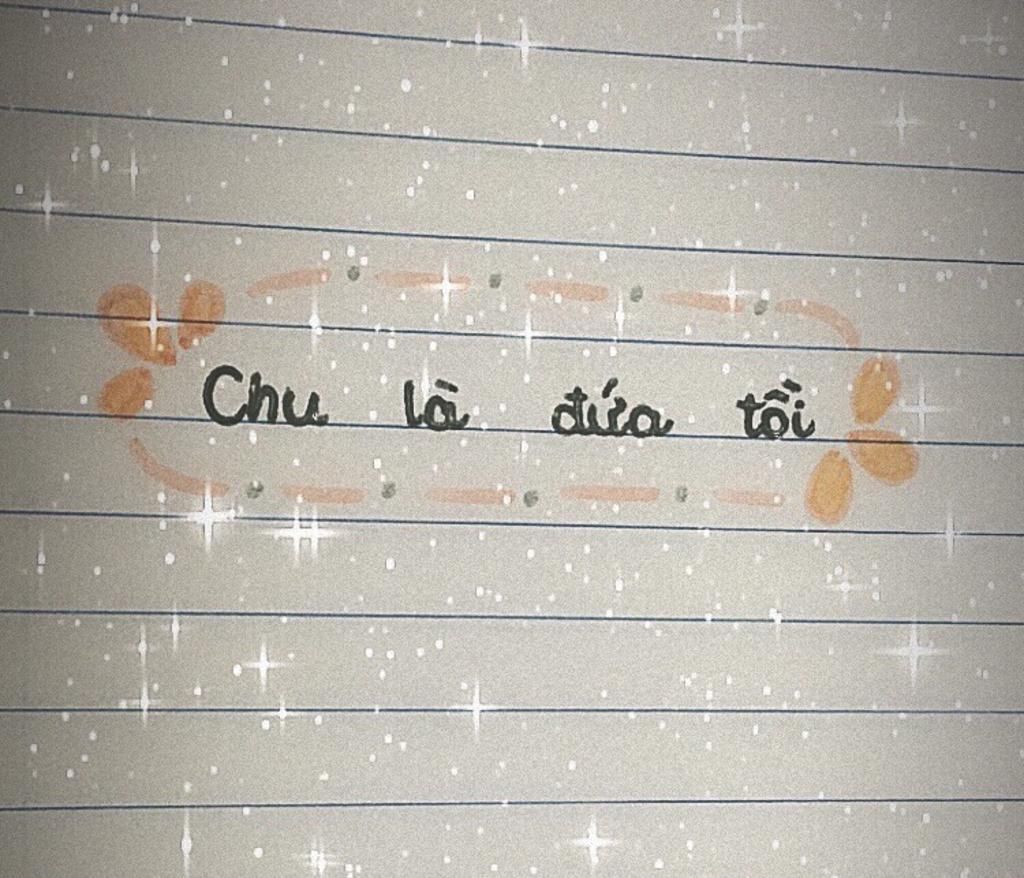 Chu là đứa tồi